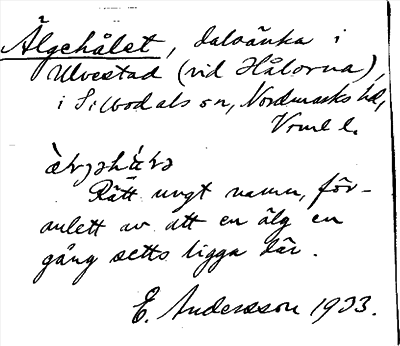 Älgehålet, dalsänka i
Ulvestad (vid Hålorna),
i Silbodals sn, Nordmarks hd,
Vrml l.
Rätt ungt namn, för-
anlett av att en älg en
gång setts ligga där.
E. Andersson 1933.